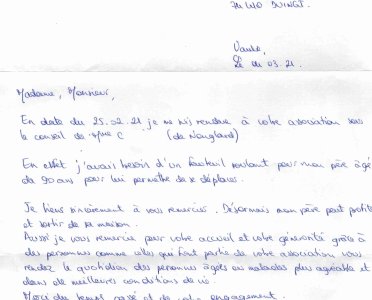 74410 DUINGT.
Le 01 03.21.
Madame, Monsieur,
En date du 25.02.21 je me suis rendue à votre association sous
le conseil de Mme C (de Novalard)
En effet j'avais besoin d'un fauteuil roulant pour mon père âgé
de 90 ans pour lui permettre de se déplacer.
Je tiens sincèrement à vous remercier. Désormais mon père peut profiter
et sortir de sa maison.
Aussi je vous remercie pour votre accueil et votre générosité grâce à
des personnes comme celles qui font partie de votre association vous
rendez le quotidien des personnes âgées ou malades plus agréable et
dans de meilleures conditions de vie.
Merci du temps passé et de votre engagement.